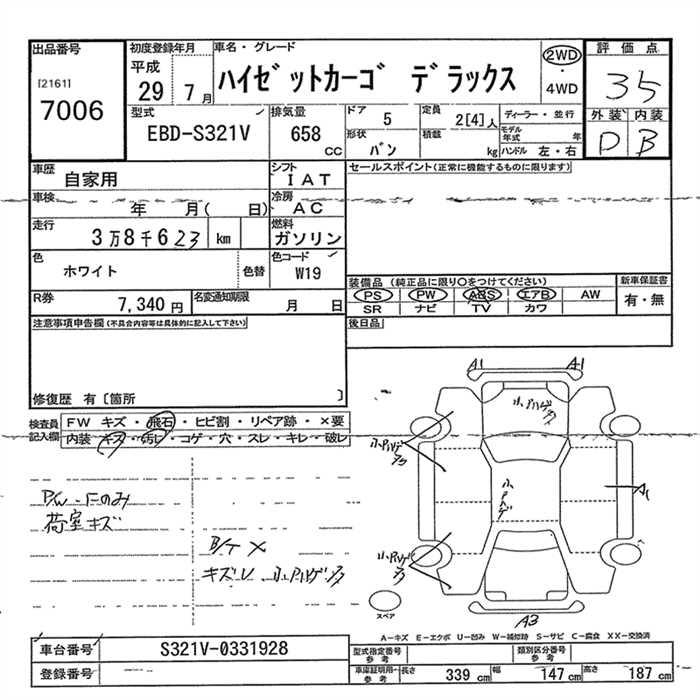 出品番号
[2161]
7006
初度登録年月
平成
29 7 月
車名・グレード
ハイゼットカーゴ デラックス
2WD
・
4WD
評価点
35
外装 内装
D B
型式
EBD-S321V
排気量
658
CC
ドア
5
形状
バン
定員
2[4]人
積載
kg
ディーラー・並行
モデル年式 年
ハンドル 左・右
車歴
自家用
シフト
IAT
セールスポイント(正常に機能するものに限ります)
車検
年 月( 日)
冷房
AC
走行
3万8千623 km
燃料
ガソリン
色
ホワイト
色替
色コード
W19
R券
7,340 円
名変通知期限
月 日
装備品 (純正品に限り○をつけてください)
PS PW ABS エアB AW
SR ナビ TV カワ
新車保証書
有・無
後日品
注意事項申告欄(不具合内容等は具体的に記入して下さい)
修復歴 有〔箇所 〕
検査員記入欄
FW キズ・飛石・ヒビ割・リペア跡・×要
内装・キズ・汚レ・コゲ・穴・スレ・キレ・破レ
P/W-Fのみ
荷室キズ
B/T ×
A1
A1
A1
A3
スペア
A-キズ E-エクボ U-凹み W-補修跡 S-サビ C-腐食 XX-交換済
車台番号
S321V-0331928
登録番号
型式指定番号 参考
類別区分番号 参考
車庫証明用 参考
長さ 339 cm 幅 147 cm 高さ 187 cm